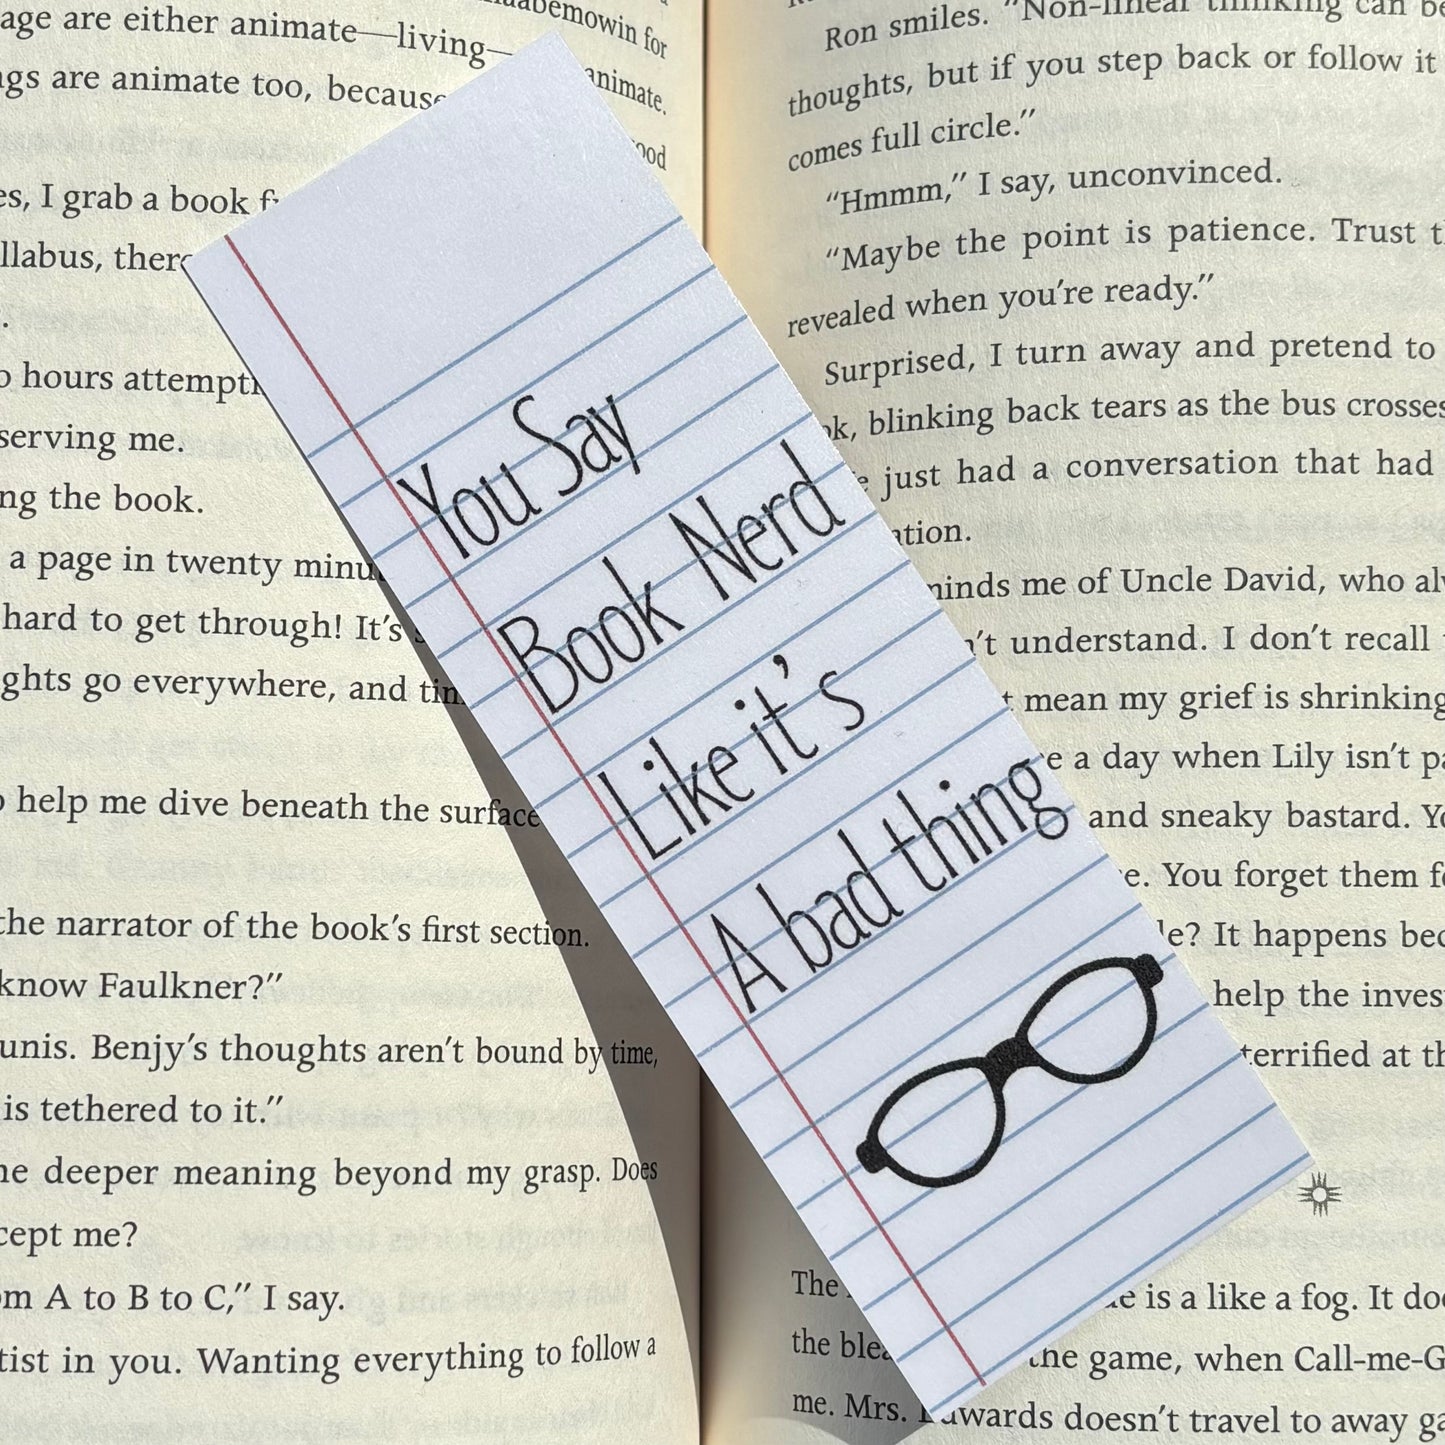 age are either animate—living—
for
ngs are animate too, because
animate.
I grab a book
hours attempti
serving me.
ng the book.
a page in twenty minu
hard to get through! It's
ghts go everywhere, and tim
help me dive beneath the surface
the narrator of the book's first section.
know Faulkner?"
unis. Benjy's thoughts aren't bound by time,
is tethered to it."
deeper meaning beyond my grasp. Does
cept me?
A to B to C," I say.
tist in you. Wanting everything to follow a
You Say
Book Nerd
Like it's
A bad thing
Ron smiles. "Non-linear thinking can be
thoughts, but if you step back or follow it
comes full circle."
"Hmmm," I say, unconvinced.
"Maybe the point is patience. Trust
revealed when you're ready."
Surprised, I turn away and pretend to
blinking back tears as the bus crosses
just had a conversation that had
ation.
minds me of Uncle David, who
understand. I don't recall
mean my grief is shrinking
a day when Lily isn't
and sneaky bastard.
You forget them
It happens
help the
terrified at
The
is a like a fog. It
the
the game, when Call-me-G
me. Mrs. Edwards doesn't travel to away